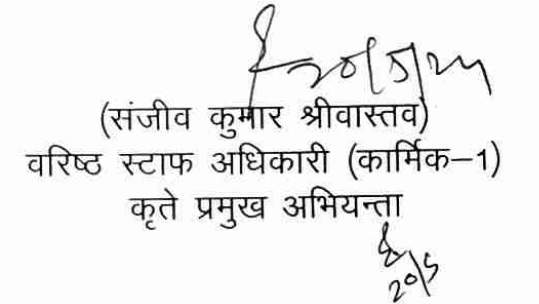 20/5/24
(संजीव कुमार श्रीवास्तव)
वरिष्ठ स्टाफ अधिकारी (कार्मिक–1)
कृते प्रमुख अभियन्ता
20/5